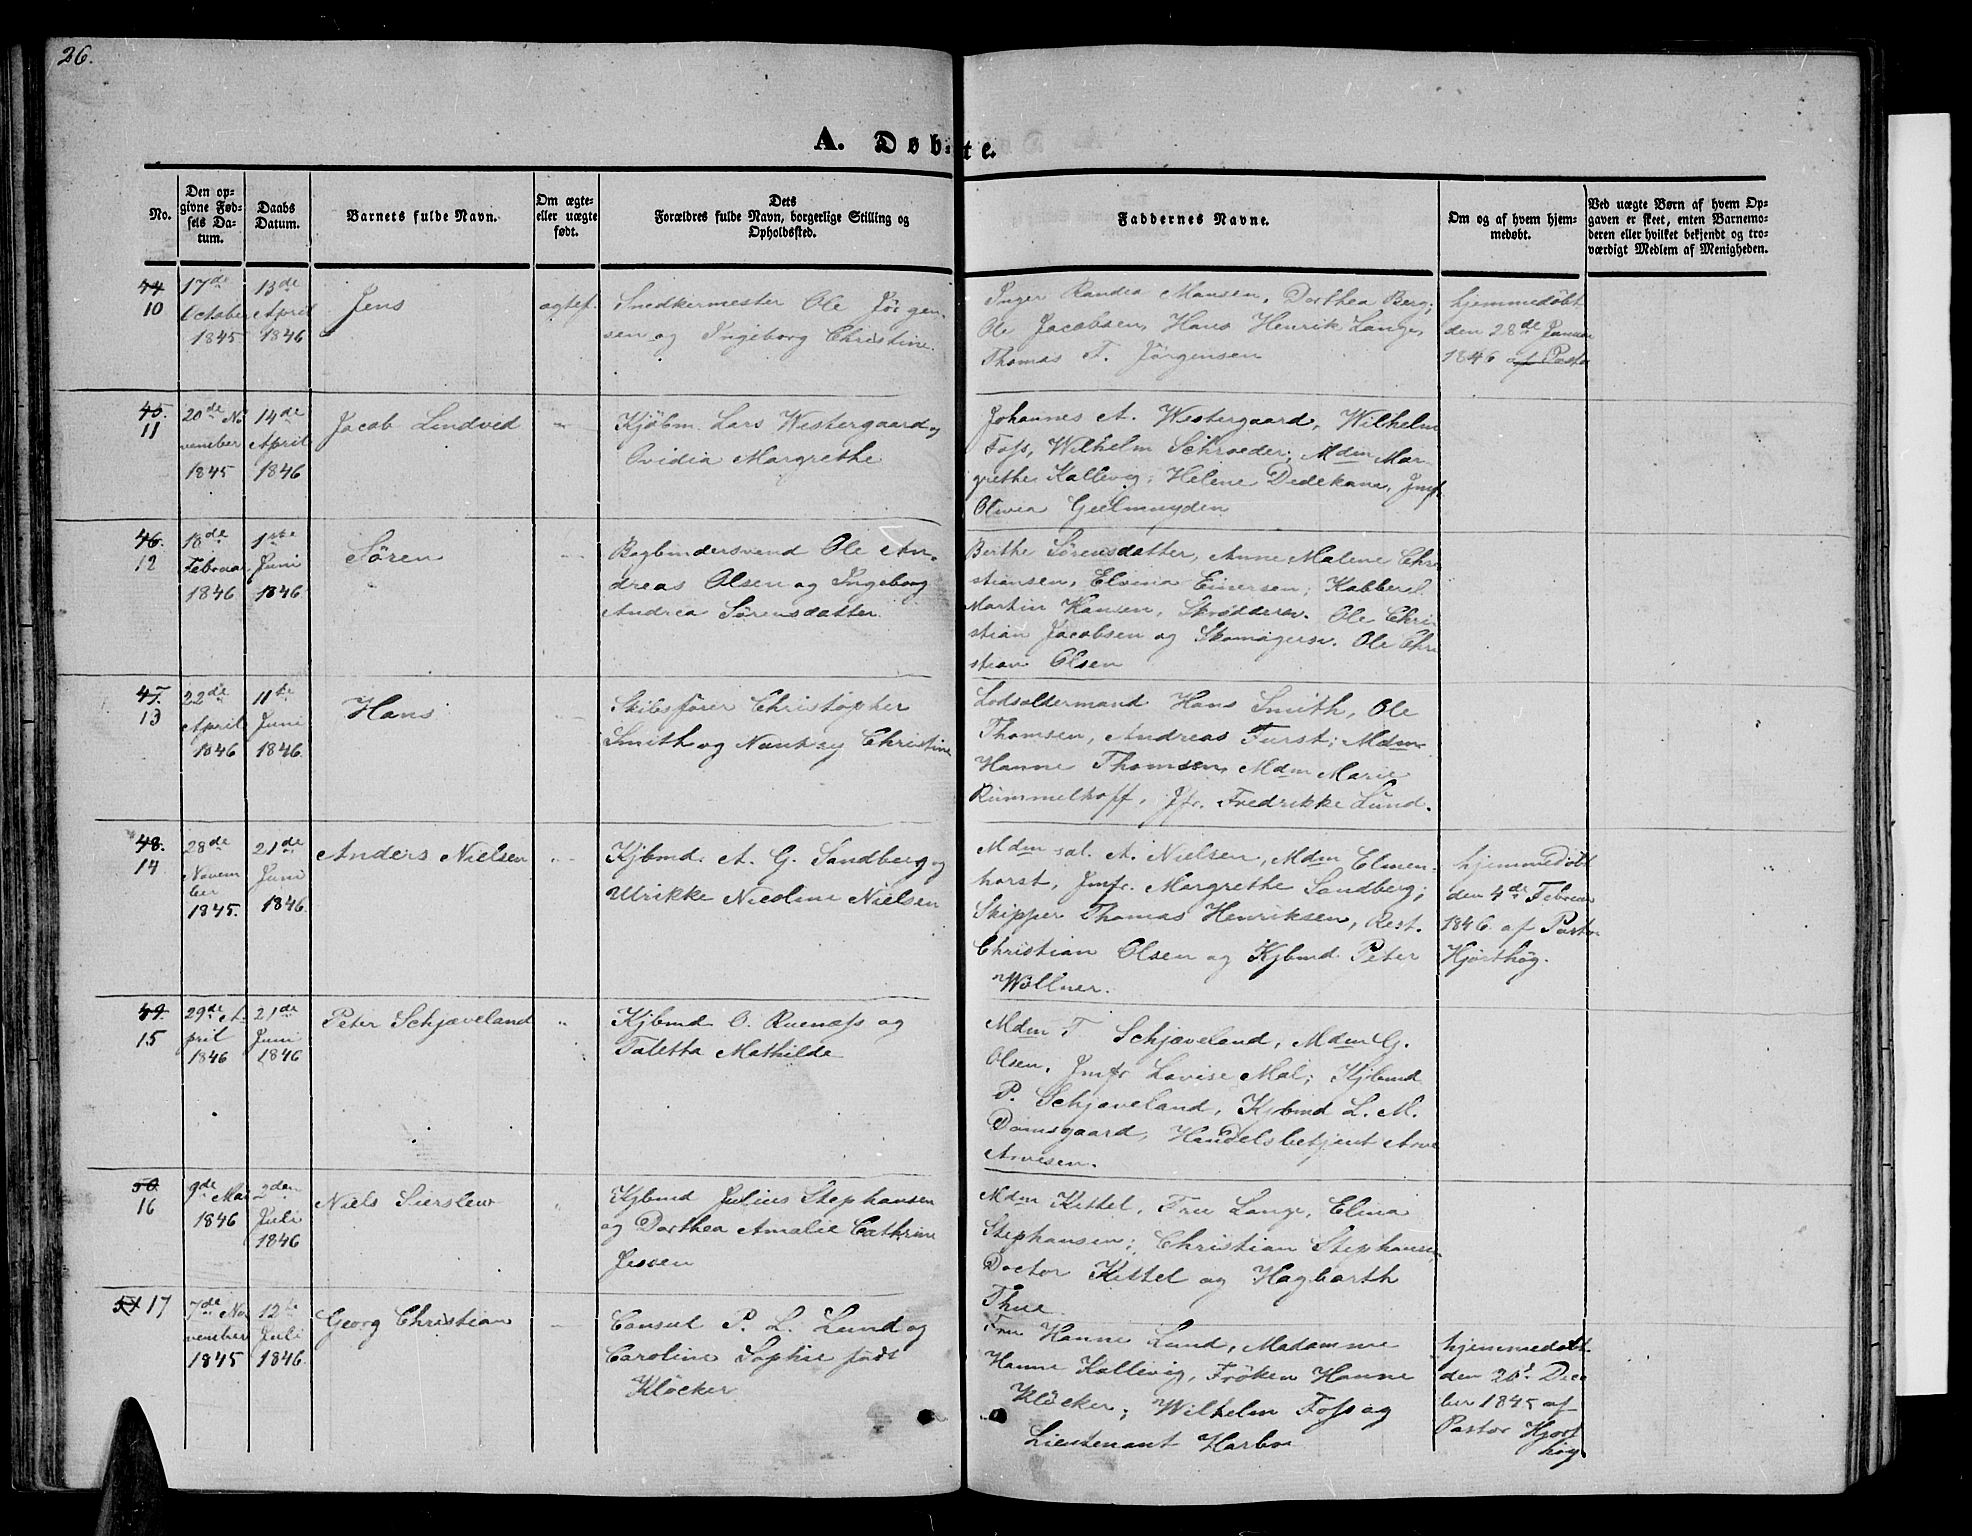 26.
A. Døbte.
No.
Den op-
givne Fød-
sels Da-
tum.
Daabs
Datum.
Barnets fulde Navn.
Om ægte
eller uægte
født.
Dets
Forældres fulde Navn, borgerlige Stilling og
Opholdssted.
Faddernes Navne.
Om og af hvem hjem-
medøbt.
Ved uægte Børn af hvem Op-
gaven er skeet, enten Barnemo-
deren eller hvilket bekjendt og tro-
værdigt Medlem af Menigheden.
44
10
17de
October
1845
13de
April
1846
Jens
ægtef.
Snedkermester Ole Jörgen-
sen og Ingeborg Christine.
Inger Randea Mansen, Dorthea Berg;
Ole Jacobsen, Hans Henrik Lange,
Thomas F. Jörgensen
hjemmedöbt
den 28de Januar
1846 af Pasto
45.
11
20de No
vember
1845
14de
April
1846
Jacob Lindvid
Kjöbm. Lars Westergaard og
Ovidia Margrethe
Johannes A. Westergaard, Wilhelm
Foss, Wilhelm Schroeder; Mdm Mar-
grethe Kallevig; Helene Dedekam, Jmf.
Olivia Geelmuyden
46.
12
18de
Februar
1846
1ste
Juni
1846
Sören
Bogbindersvend Ole An-
dreas Olsen og Ingeborg
Andrea Sörensdatter.
Berthe Sörensdatter, Anne Malene Chri
stiansen, Elvina Einersen; Kabbersl.
Martin Hansen, Skrøddersv. Ole Chri-
stian Jacobsen og Skomagersv. Ole Chri
stian Olsen
47.
13
22de
April
1846
11te
Juni
1846
Hans
Skibsförer Christopher
Smith og Christine
Lodsoldermand Hans Smith, Ole
Thomsen, Andreas Furst; Mdm
Hanne Thomsen, Mdm Marie
Rummelhoff, Jfr. Fredrikke Lund.
48.
14
28de
Novem
ber
1845.
21de
Juni
1846
Anders Nielsen
Kjbmd. A. G. Sandberg og
Ulrikke Nicoline Nielsen
Mdm sal. A. Nielsen, Mdm Elmen-
horst, Jmfr. Margrethe Sandberg;
Skipper Thomas Henriksen, Rest.
Christian Olsen og Kjbmd Peter
Wöllner.
hjemmedöbt
den 4de Februar
1846 af Pastor
Hjorthög.
49
15
29de A-
pril
1846
21de
Juni
1846
Peter Schjæveland
Kjbmd O. Ruenæss og
Taletta Mathilde
Mdm T Schjæveland, Mdm G.
Olsen, Jmfr Lovise Mal; Kjbmd
P. Schjæveland, Kjbmd L. M.
Damsgaard, Handelsbetjent Arve
Arvesen.
50
16
9de Mai
1846
2den
Juli
1846
Niels Sierslew
Kjbmd Julius Stephansen
og Dorthea Amalie Cathrine
Jessen
Mdm Kittel, Frue Lange, Elina
Stephansen; Christian Stephansen
Doctor Kittel og Hagbarth
Thue
51 17
7de No
vember
1845
12te
Juli
1846
Georg Christian
Consul P. L. Lund og
Caroline Sophie född
Klöcker
Frue Hanne Lund, Madamme
Hanne Kallevig, Fröken Hanne
Klöcker; Wilhelm Foss og
Lieutenant Harboe
hjemmedöbt
den Dec
ber 1845 af
Pastor Hjort
hög